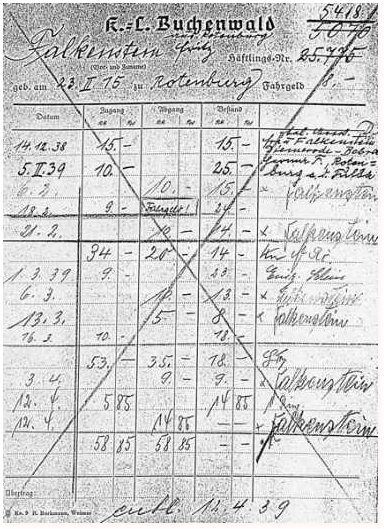 5418
5070
K.-L. Buchenwald
Falkenstein Fritz
Häftlings-Nr. 25.775
(Vor- und Zuname)
geb. am 23. II 15 zu Rotenburg Fahrgeld 8.-
Datum Zugang Abgang Bestand
RM Rpf RM Rpf RM Rpf
14.12.38 15.- 15.- Falkenstein
5. II. 39 10.- 25.- Roten-
6. 2. 10.- 15.- burg a. d. Fulda
x Falkenstein
18. 2. 9.- Fahrgeld! 24.-
21. 2. 10.- 14.- x Falkenstein
34 - 20 - 14 -
1. 3. 39 9.- 23.-
6. 3. 10.- 13.- x Falkenstein
13. 3. 5 - 8 - x Falkenstein
16. 3. 10.- 18.-
53.- 35.- 18.-
3. 4. 9.- 9.- x Falkenstein
12. 4. 5 85 14 85
12. 4. 14 85 - - x Falkenstein
58 85 58 85 - -
Übertrag:
Ko. 9 H. Borkmann, Weimar
entl. 12. 4. 39